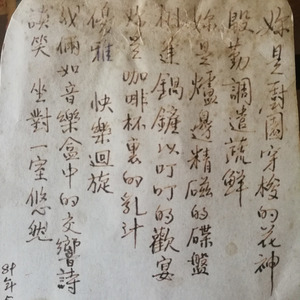 妳是對園穿梭的花神
殷勤調造蔬鮮
妳是爐邊精磁的碟盤
樹建鍋鏟以叮叮的歡宴
妳是咖啡杯裏的乳汁
優雅 快樂迴旋
我倆如音樂盒中的交響詩
談笑 坐對一室悠然
84年5